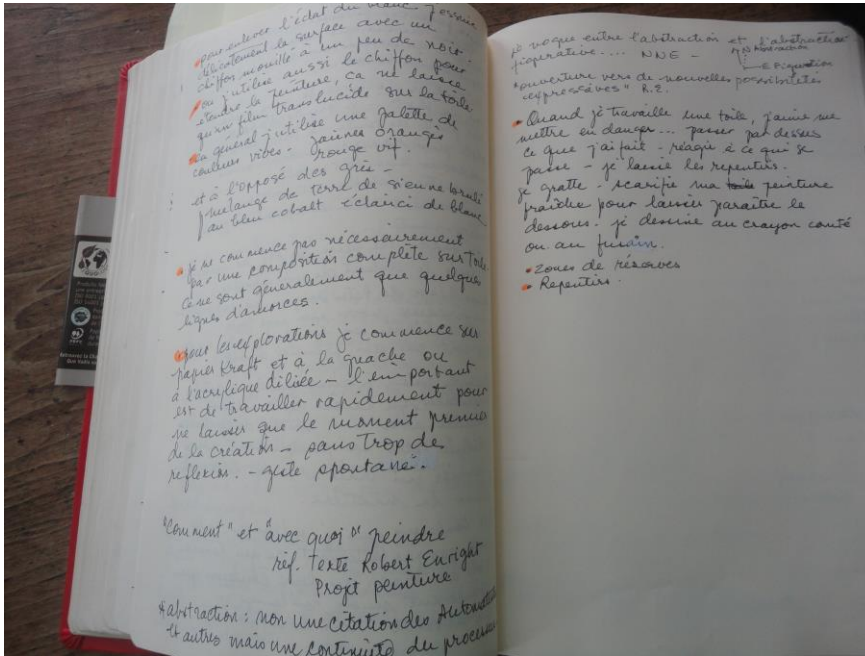 pour enlever l'éclat du blanc j'essuie
délicatement la surface avec un
chiffon mouillé à un peu de noir.
ou j'utilise aussi le chiffon pour
étendre la peinture, ça ne laisse
qu'un film translucide sur la toile
en général j'utilise une palette de
couleurs vives - jaunes orangés
rouge vif.
et à l'opposé des gris -
mélange de terre de sienne brulé
au bleu cobalt éclairci de blanc
je ne commence pas nécessairement
par une composition complète sur toile
ce ne sont généralement que quelques
lignes d'amorces.
pour les explorations je commence sur
papier Kraft et à la gouache ou
à l'acrylique diluée - l'important
est de travailler rapidement pour
ne laisser que le moment premier
de la création - sans trop de
reflexion. - geste spontané.
"Comment" et "avec quoi" peindre
réf. Texte Robert Enright
Projet peinture
* abstraction : non une citation des
et autres mais une continuité du processus
je vogue entre l'abstraction et l'abstraction
figurative.... NNE -
"ouverture vers de nouvelles possibilités
expressives" R.E.
• Quand je travaille une toile, j'aime me
mettre en danger... passer par dessus
ce que j'ai fait - réagir à ce qui se
passe - je laisse les repentirs.
je gratte - scarifie ma peinture
fraîche pour laisser paraître le
dessous. je dessine au crayon conté
ou au fusain.
• zones de réserves
• Repentirs.